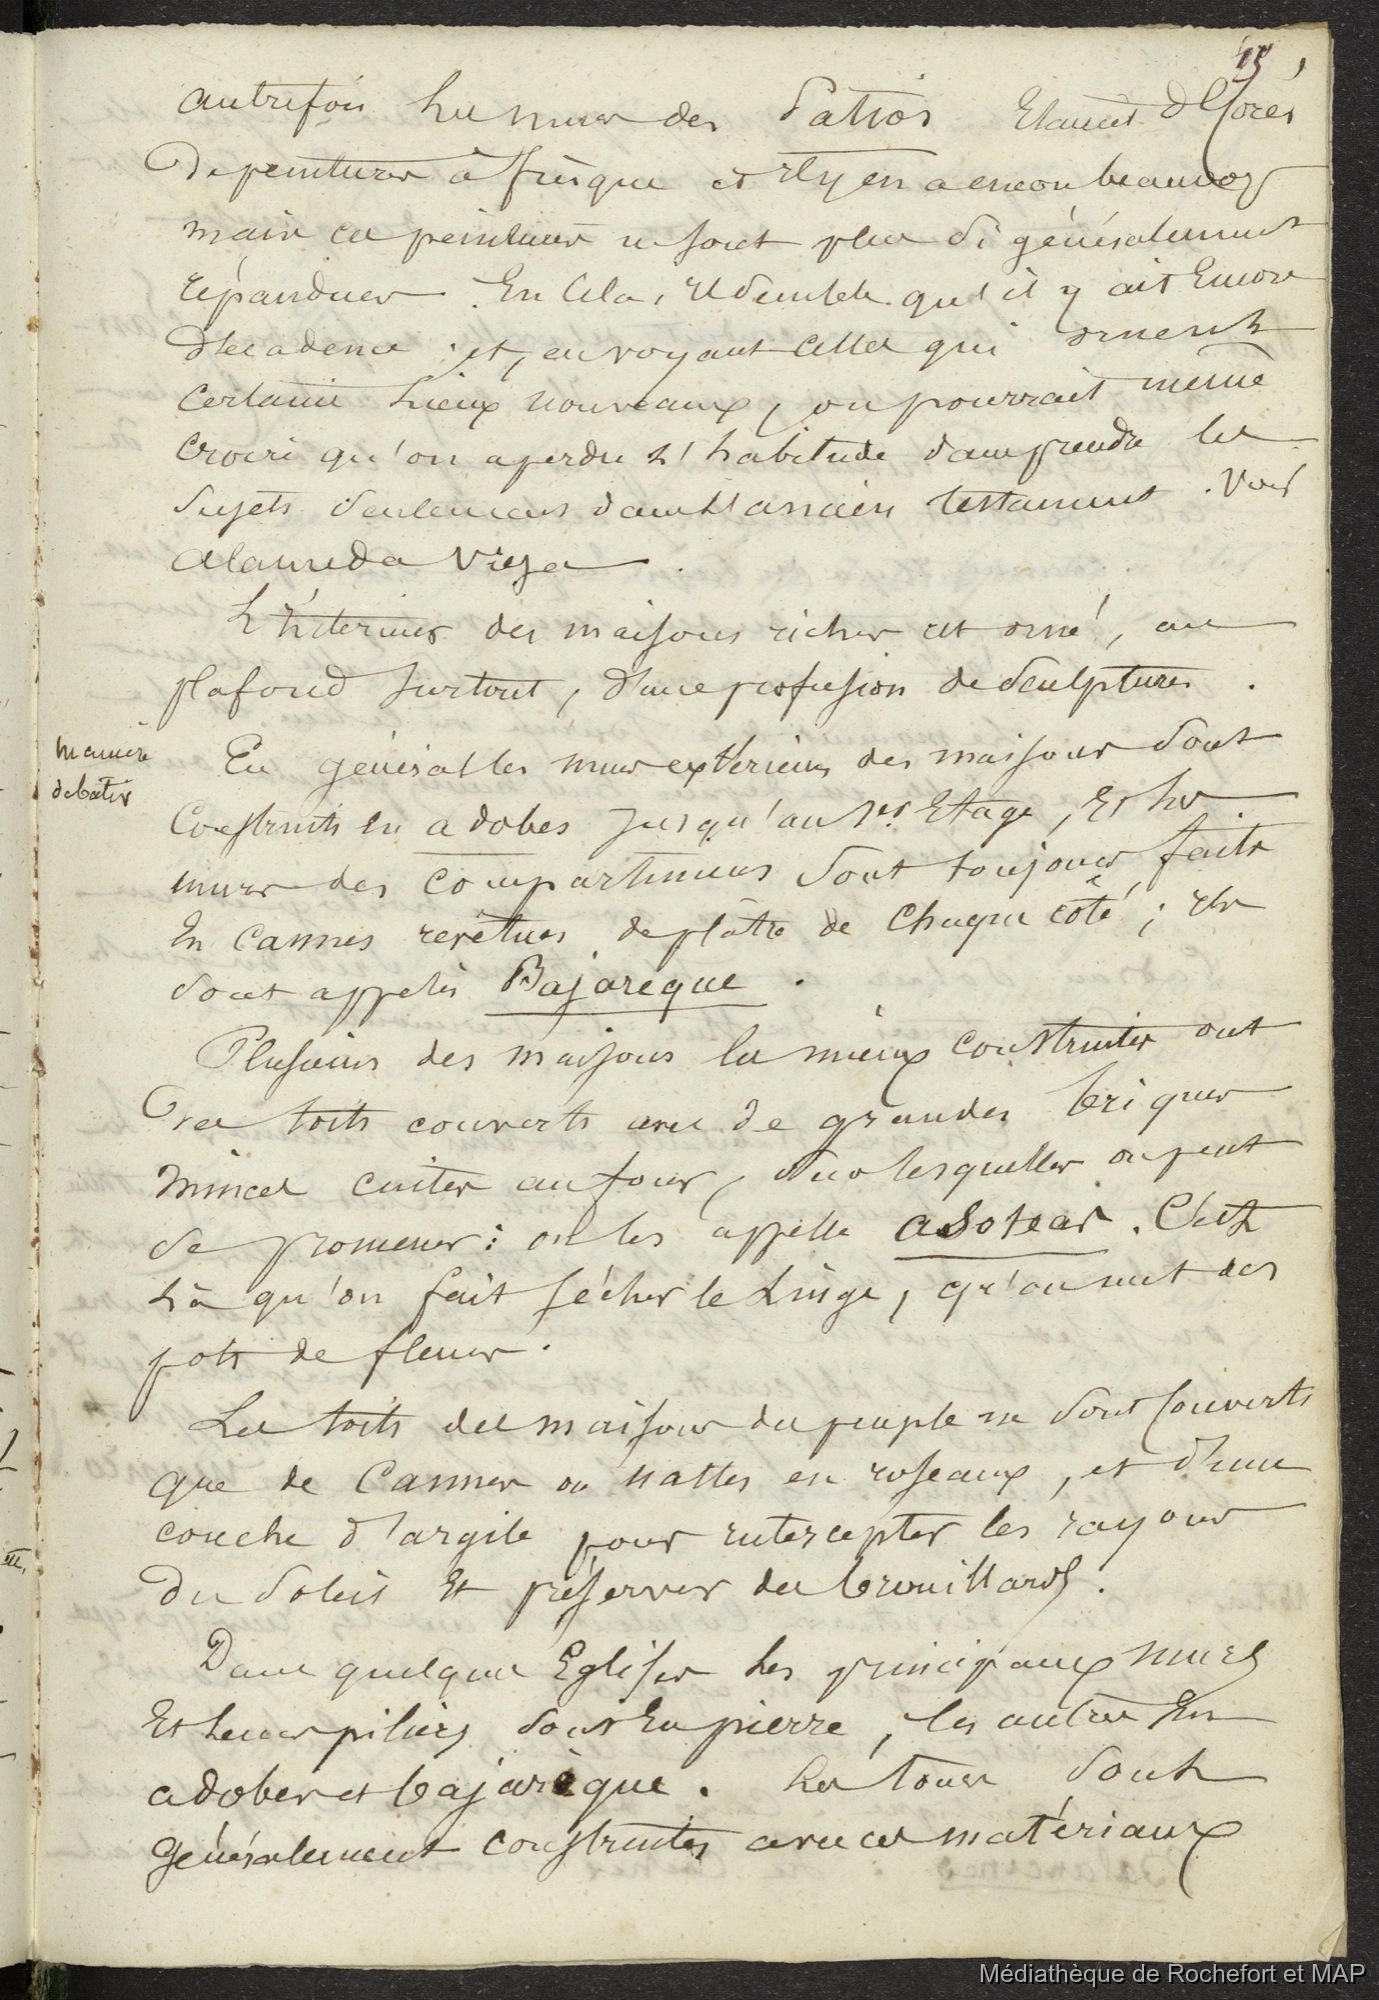 15
autrefois les murs des Patios Etaient décorés
de peintures à frèsque et il y en a encore beaucoup
mais ces peintures ne sont plus si généralement
répandues. En cela, il semble qu'il y ait Encore
décadence ; et, en voyant celles qui ornent
certains lieux nouveaux, on pourrait même
croire qu'on a perdu l'habitude d'en prendre les
sujets seulement dans l'ancien testament. Voir
alameda vieja.
L'intérieur des maisons riches est orné, au
plafond surtout, d'une profusion de sculptures.
manière
de batir
En général les murs extérieurs des maisons sont
Construits en adobes jusqu'au 1er Etage, Et les
murs des compartimens sont toujours faits
En cannes revêtues de plâtre de chaque côté ; ils
sont appelés Bajareque.
Plusieurs des maisons les mieux construites ont
des toits couverts avec de grandes briques
minces cuites au four, sur lesquelles on peut
se promener : on les appelle asoteas. C'est
là qu'on fait sécher le Linge, qu'on met des
pots de fleurs.
Les toits des maisons du peuple ne sont couverts
que de Cannes ou nattes en roseaux, et d'une
couche d'argile pour intercepter les rayons
du soleil Et préserver des brouillards.
Dans quelques Eglises les principaux murs
Et leurs piliers sont En pierre, les autres En
adobes et bajarèque. Les tours sont
généralement construites avec ces matériaux
Médiathèque de Rochefort et MAP